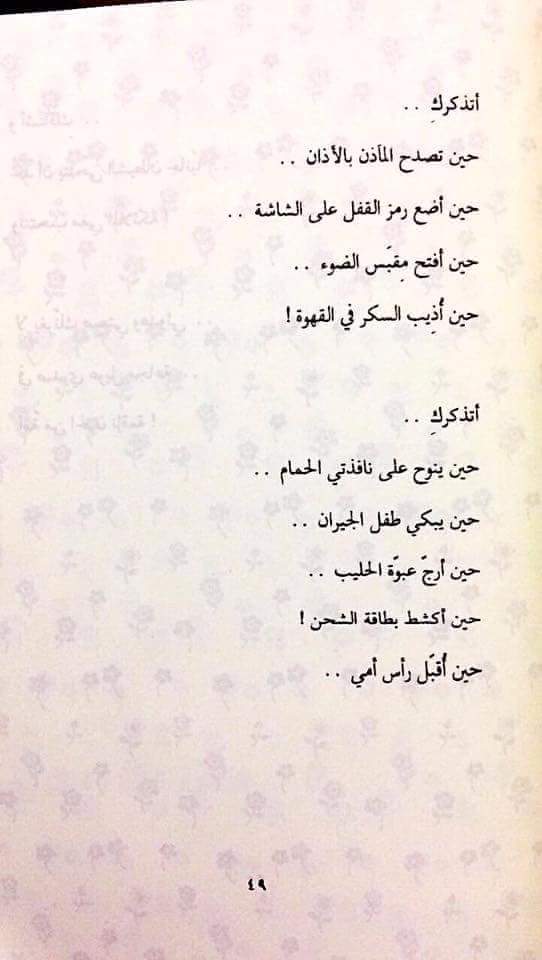 أتذكركِ . .
حين تصدح المآذن بالأذان . .
حين أضع رمز القفل على الشاشة . .
حين أفتح مِقبَس الضوء . .
حين أُذِيب السكر في القهوة !
أتذكركِ . .
حين ينوح على نافذتي الحمام . .
حين يبكي طفل الجيران . .
حين أرجّ عبوّة الحليب . .
حين أكشط بطاقة الشحن !
حين أُقبّل رأس أمي . .
٤٩